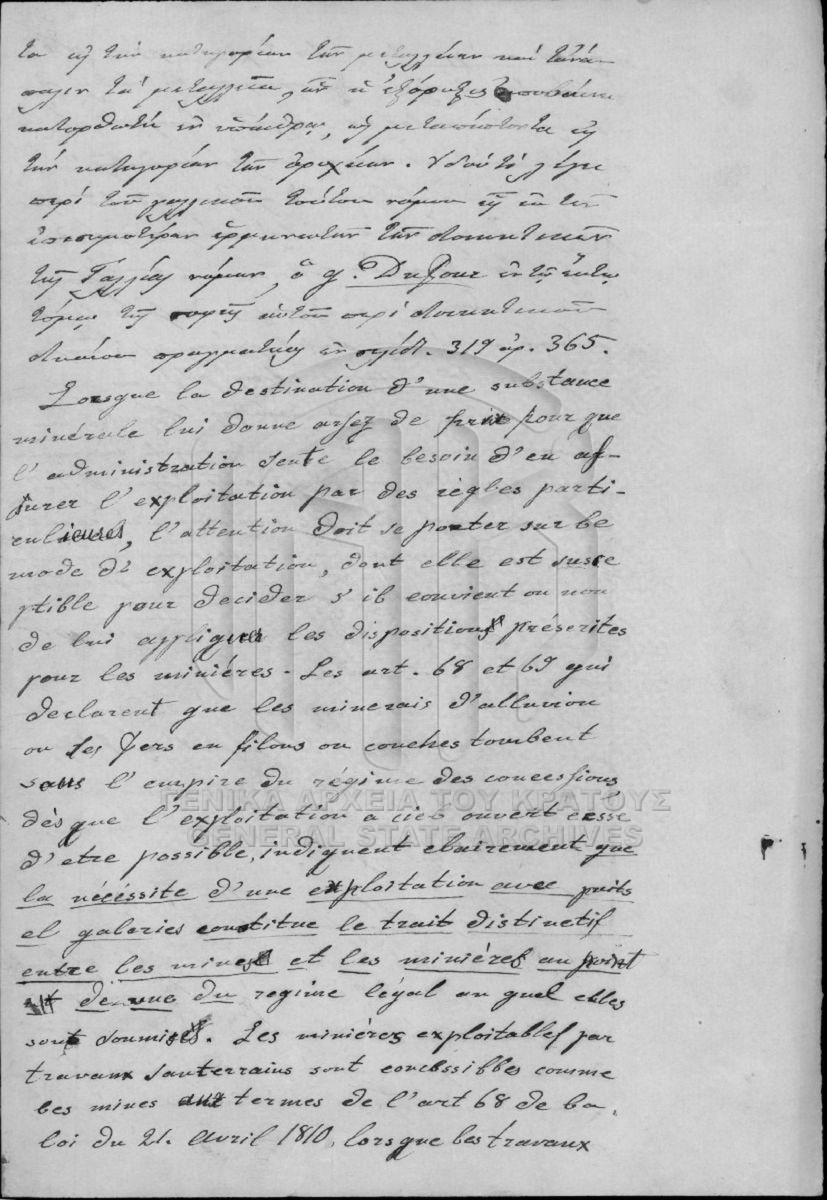 τα εἰς τὴν κατηγορίαν τῶν μεταλλείων καὶ τἀνά-
παλιν τὰ μεταλλεῖα, ὧν ἡ ἐξόρυξις ἀποβαίνει
κατορθωτὴ ἐν ὑπαίθρῳ, εἰς
τὴν κατηγορίαν τῶν ὀρυχείων. Ἰδοὺ τί λέγει
περὶ τοῦ γαλλικοῦ τούτου νόμου εἷς ἐκ τῶν
ἐπισημοτέρων ἑρμηνευτῶν τῶν διοικητικῶν
τῆς Γαλλίας νόμων, ὁ g. Dufour ἐν τῷ ἕκτῳ
τόμῳ τῆς σοφῆς αὐτοῦ περὶ διοικητικοῦ
δικαίου πραγματείας ἐν σελίδι. 319 ἀρ. 365.
Lorsque la destination d'une substance
minérale lui donne assez de prix pour que
l'administration sente le besoin d'en as-
surer l'exploitation par des règles parti-
culieuses, l'attention doit se porter sur le
mode d'exploitation, dont elle est susce
ptible pour decider s'il convient ou non
de lui appliquer les dispositions préscrites
pour les minières. Les art. 68 et 69 qui
declarent que les minerais d'alluvion
ou les fers en filons ou couches tombent
sous l'empire du régime des concessions
dès que l'exploitation a ciel ouvert cesse
d'etre possible, indiquent clairement que
la nécéssite d'une exploitation avec puits
et galeries constitue le trait distinctif
entre les mines et les minières au point
de vue du regime légal au quel elles
sont soumises. Les minières exploitables par
travaux souterrains sont concessibles comme
les mines aux termes de l'art 68 de la
loi du 21. Avril 1810, lorsque les travaux
ΓΕΝΙΚΑ ΑΡΧΕΙΑ ΤΟΥ ΚΡΑΤΟΥΣ
GENERAL STATE ARCHIVES